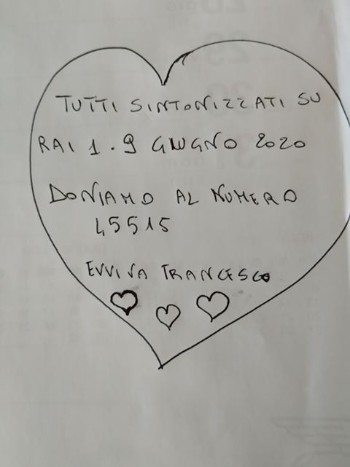 TUTTI SINTONIZZATI SU
RAI 1. 9 GIUGNO 2020
DONIAMO AL NUMERO
45515
EVVIVA FRANCESCO